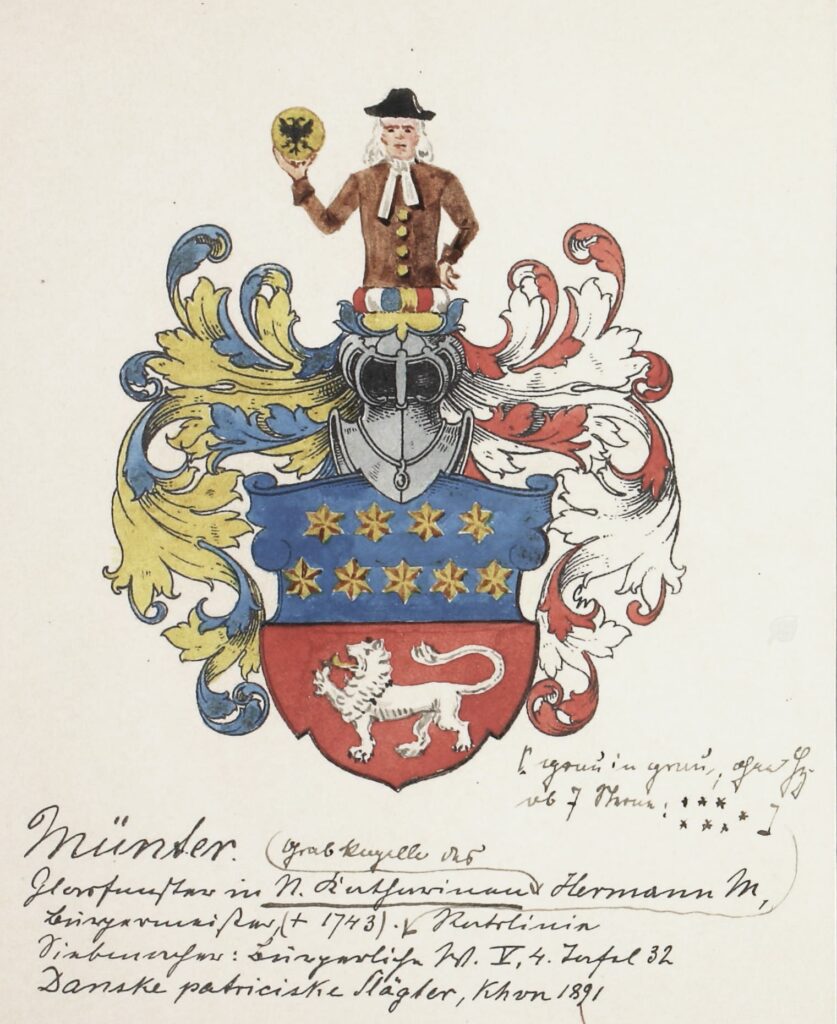 [grau in grau, ohne Hz
ob 7 Sterne: ]
Münter. (Grabkapelle des
Glasfenster in N. Katharinen Hermann M,
Bürgermeister, († 1743). Ratslinie
Siebmacher: Bürgerliche W. V, 4. Tafel 32
Danske patriciske Slägter, Khvn 1891